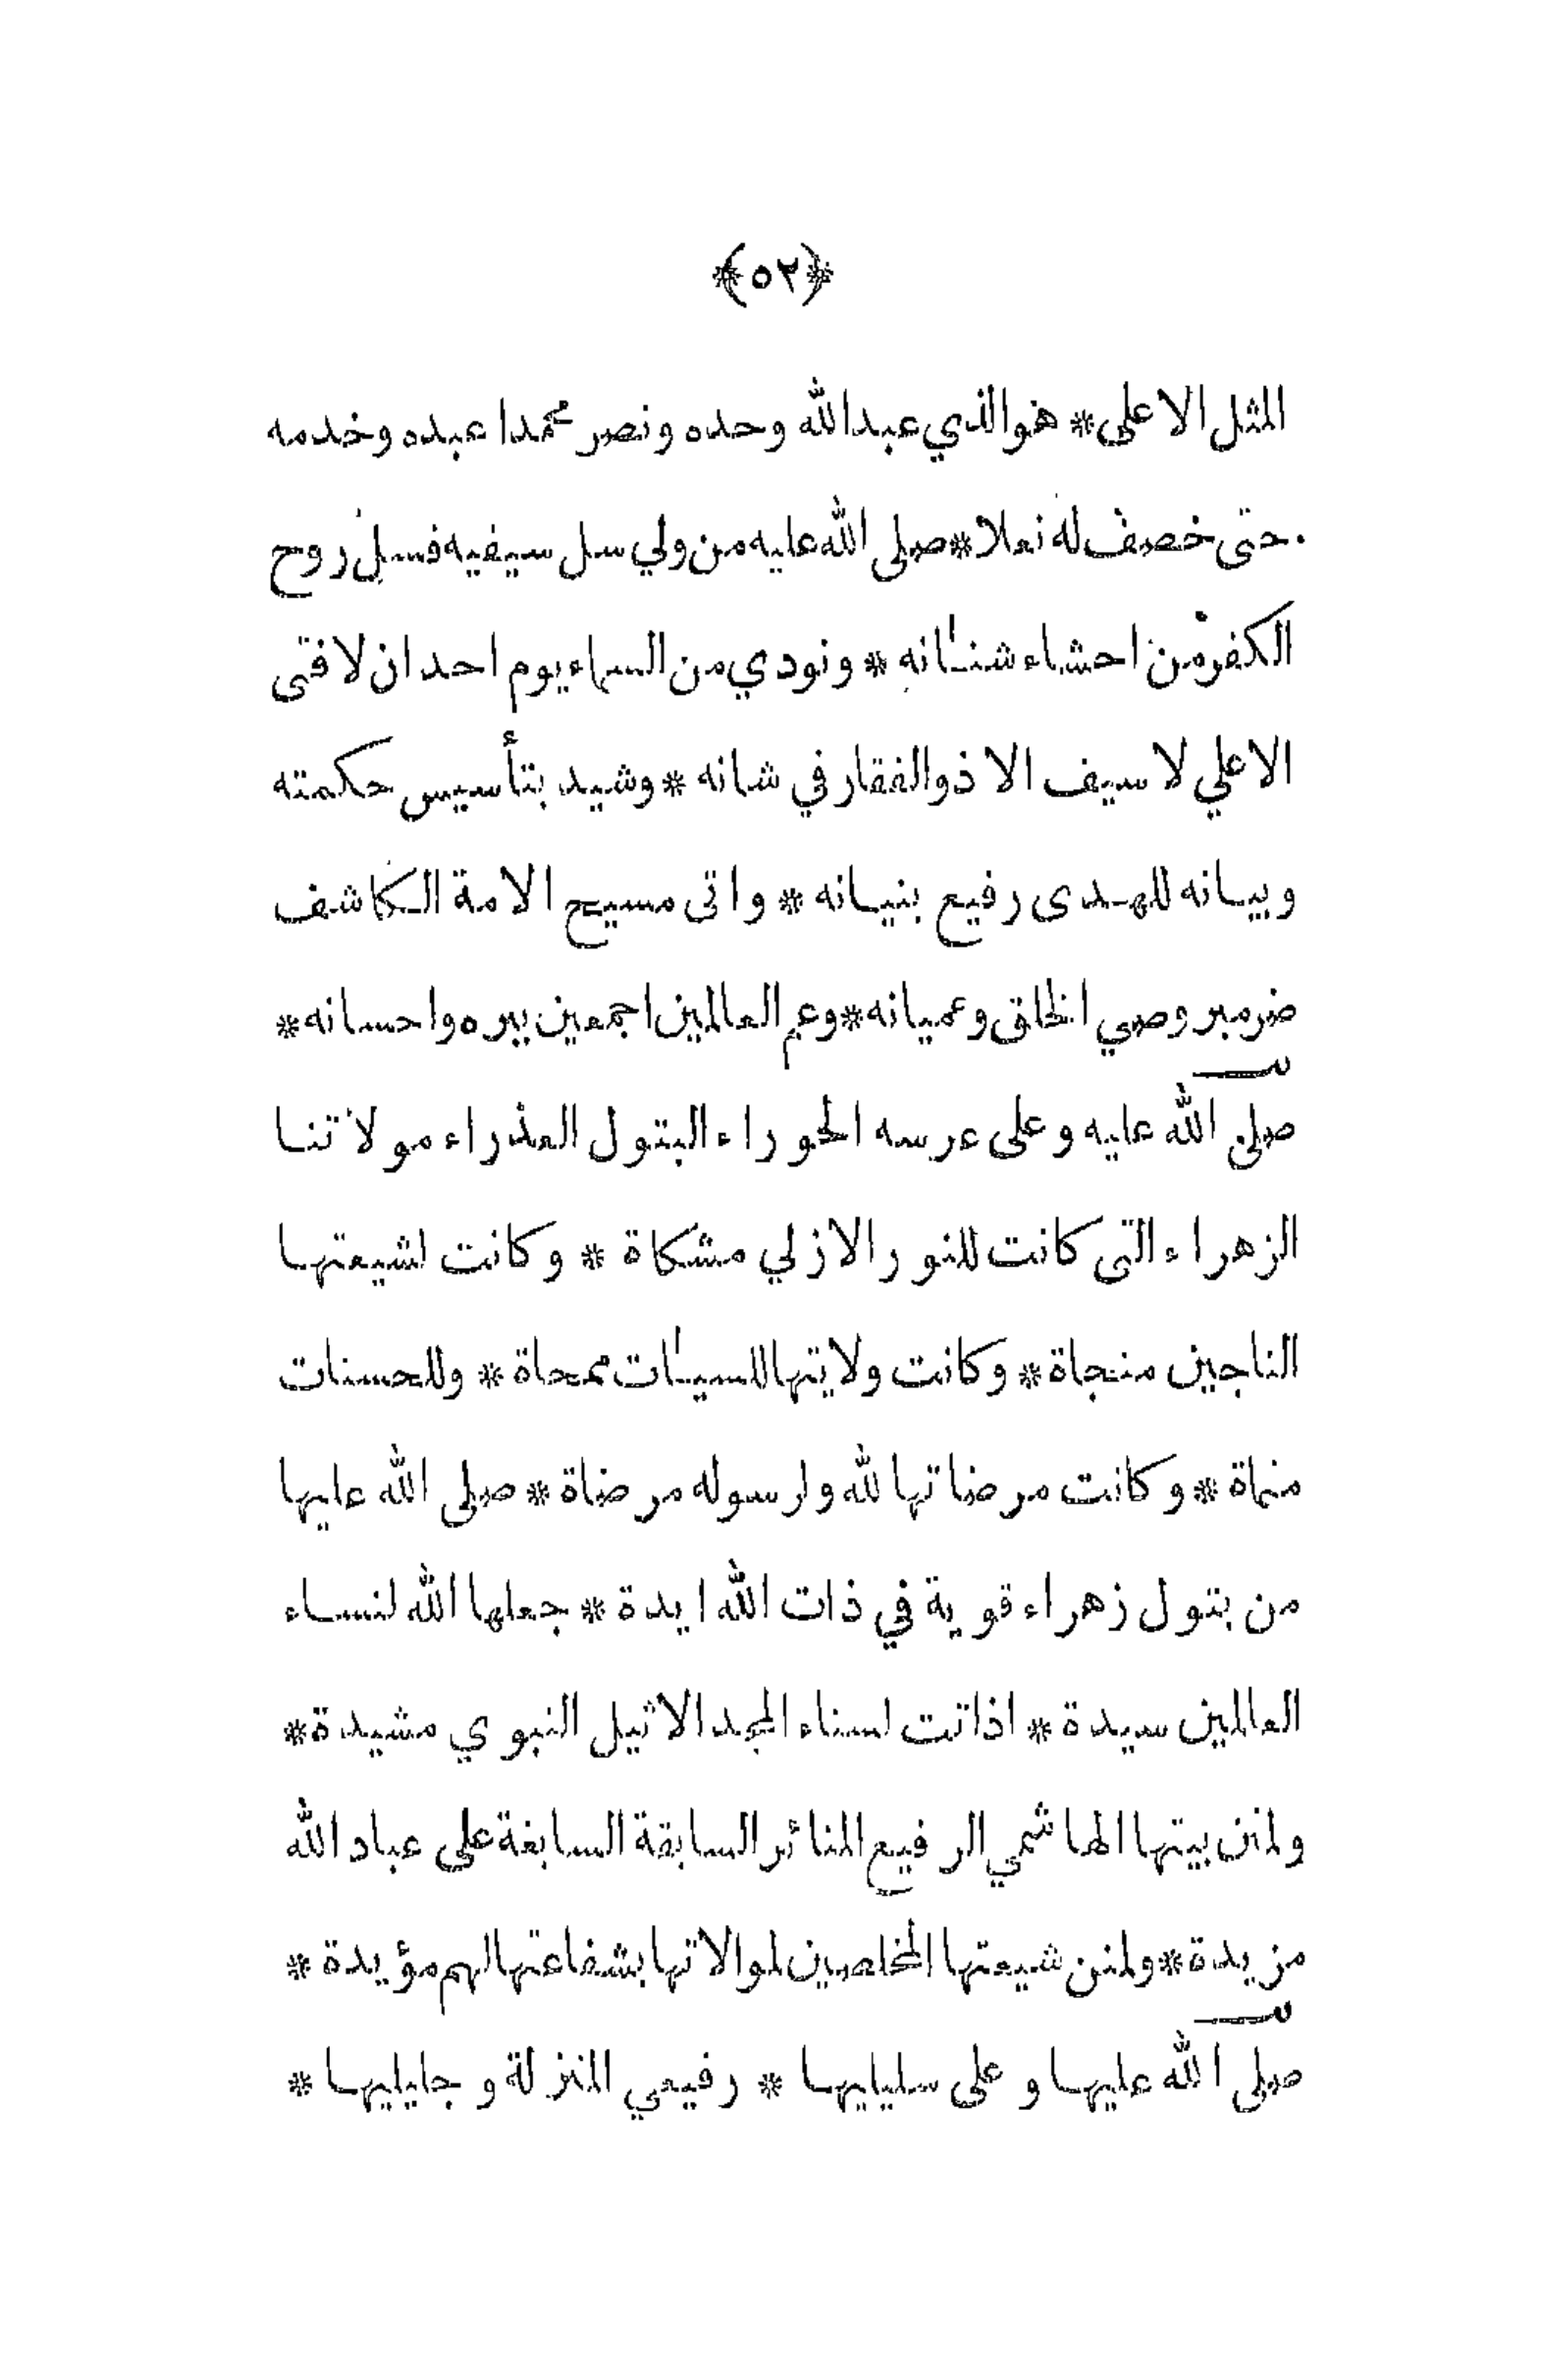 ﴿٥٢﴾
المثل الاعلى * هو الذي عبد الله وحده ونصر محمدا عبده وخدمه
حتى خصف له نعلا * صلى الله عليه من ولي سل سيفيه فسل روح
الكفر من احشاء شنـٔانه * ونودي من السماء يوم احد ان لا فتى
الا علي لا سيف الا ذو الفقار في شانه * وشيد بتأسيس حكمته
وبيانه للهدى رفيع بنيانه * واتى مسيح الامة الكاشف
ضر مبروصي الخلق وعميانه * وعم العالمين اجمعين ببره واحسانه *
صلى الله عليه وعلى عرسه الحوراء البتول العذراء مولاتنا
الزهراء التى كانت للنور الازلي مشكاة * وكانت لشيعتها
الناجين منجاة * وكانت ولايتها للسيـٔات ممحاة * وللحسنات
منماة * وكانت مرضاتها لله ولرسوله مرضاة * صلى الله عليها
من بتول زهراء قوية في ذات الله ايدة * جعلها الله لنساء
العالمين سيدة * اذ اتت لسناء المجد الاثيل النبوي مشيدة *
ولمنن بيتها الهاشمي الرفيع المنائر السابقة السابغة على عباد الله
مزيدة * ولمنن شيعتها المخلصين لموالاتها بشفاعتها لهم مؤيدة *
صلى الله عليها وعلى سليليها * رفيعي المنزلة وجليليها *